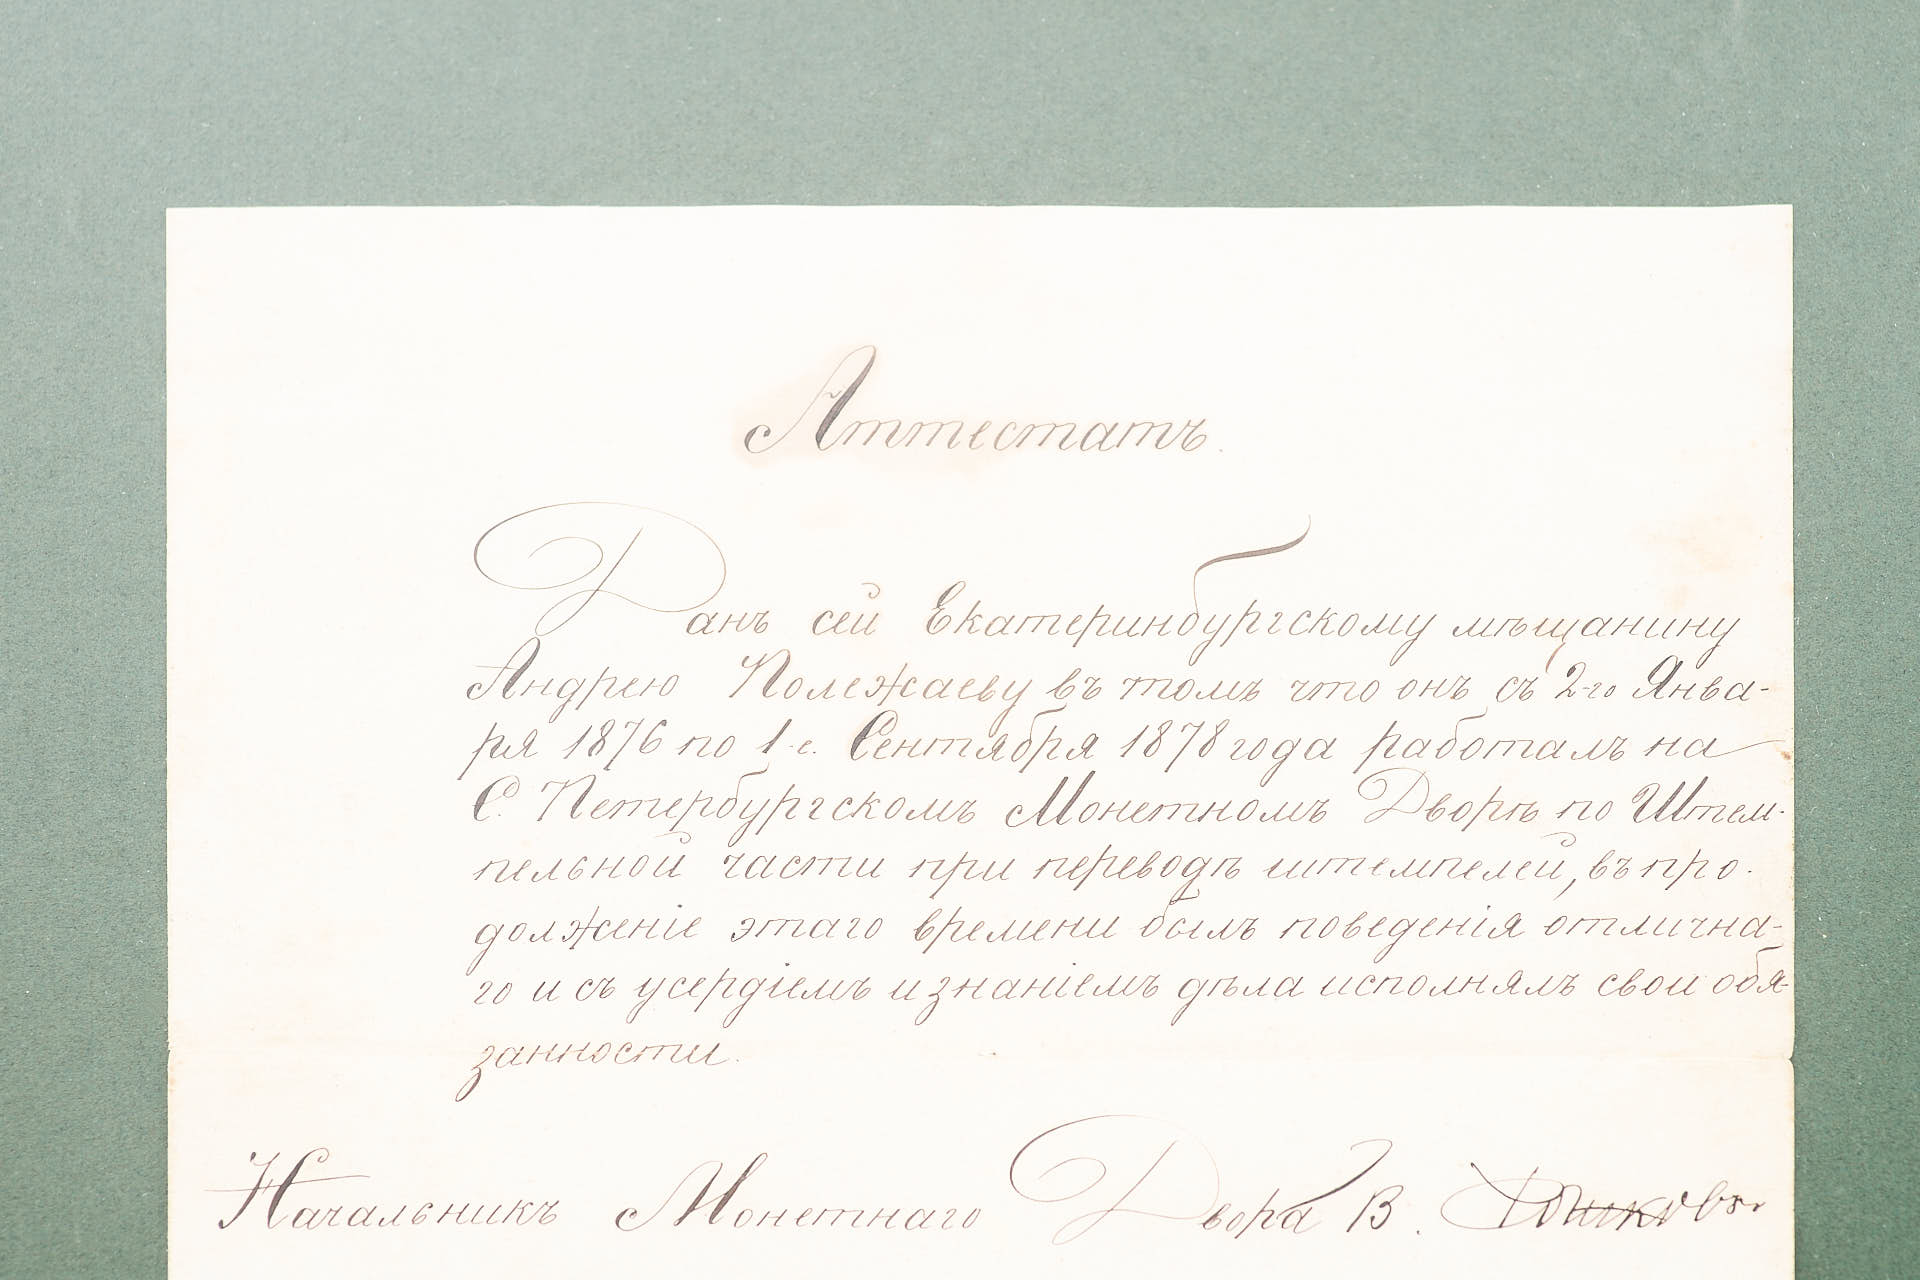 Аттестатъ.
Данъ сей Екатеринбургскому мѣщанину
Андрею Полежаеву въ томъ что онъ съ 2-го Янва-
ря 1876 по 1-е. Сентября 1878 года работалъ на
С. Петербургскомъ Монетномъ Дворѣ по Штем-
пельной части при переводѣ штемпелей, въ про-
долженіе этаго времени былъ поведенія отлична-
го и съ усердіемъ и знаніемъ дѣла исполнялъ свои обя-
занности.
Начальникъ Монетнаго Двора В.